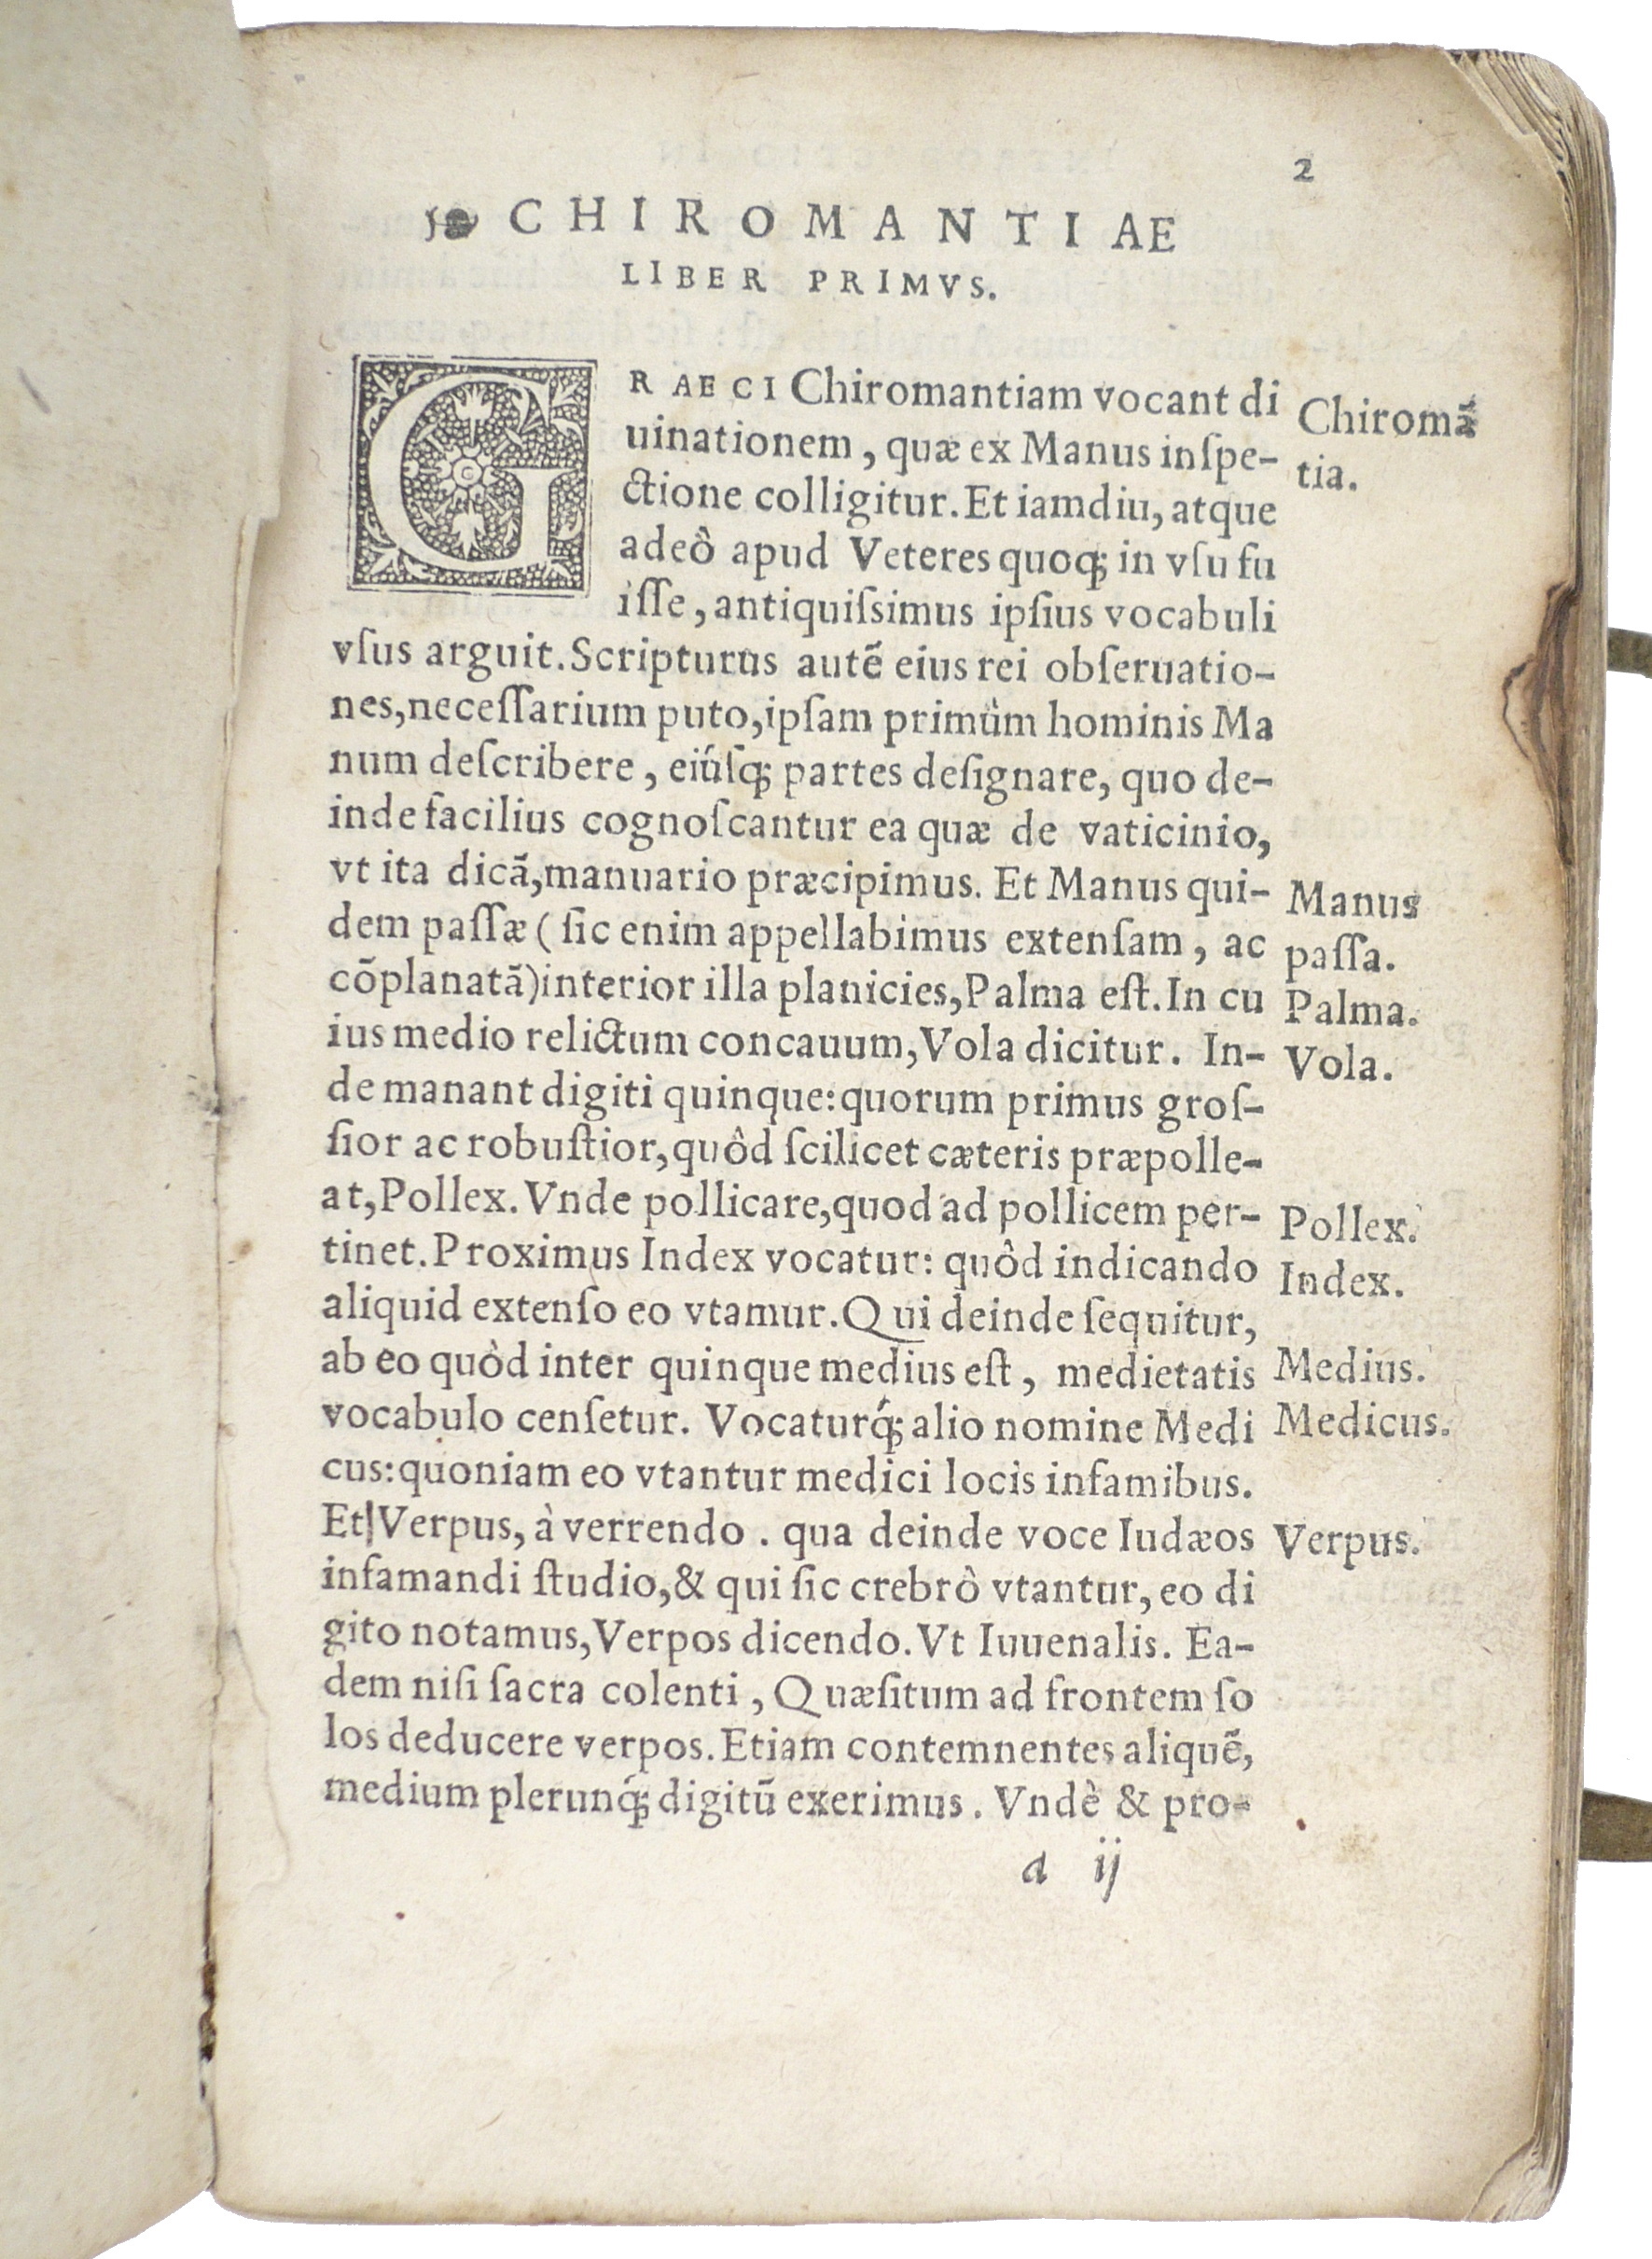 2
CHIROMANTIAE
LIBER PRIMVS.
GRAECI Chiromantiam vocant di
uinationem, quæ ex Manus inſpe-
ctione colligitur. Et iamdiu, atque
adeò apud Veteres quoq; in vſu fu
iſſe, antiquiſsimus ipſius vocabuli
vſus arguit. Scripturus autẽ eius rei obſeruatio-
nes, neceſſarium puto, ipſam primùm hominis Ma
num deſcribere, eiúſq; partes deſignare, quo de-
inde facilius cognoſcantur ea quæ de vaticinio,
vt ita dicã, manuario præcipimus. Et Manus qui-
dem paſſæ (ſic enim appellabimus extenſam, ac
cõplanatã) interior illa planicies, Palma eſt. In cu
ius medio relictum concauum, Vola dicitur. In-
de manant digiti quinque: quorum primus groſ-
ſior ac robuſtior, quôd ſcilicet cæteris præpolle-
at, Pollex. Vnde pollicare, quod ad pollicem per-
tinet. Proximus Index vocatur: quôd indicando
aliquid extenſo eo vtamur. Qui deinde ſequitur,
ab eo quòd inter quinque medius eſt, medietatis
vocabulo cenſetur. Vocaturq́; alio nomine Medi
cus: quoniam eo vtantur medici locis infamibus.
Et Verpus, à verrendo. qua deinde voce Iudæos
infamandi ſtudio, & qui ſic crebrò vtantur, eo di
gito notamus, Verpos dicendo. Vt Iuuenalis. Ea-
dem niſi ſacra colenti, Quæſitum ad frontem ſo
los deducere verpos. Etiam contemnentes aliquẽ,
medium plerunq́; digitũ exerimus. Vndè & pro-
a ij
Chiromã
tia.
Manus
paſſa.
Palma.
Vola.
Pollex.
Index.
Medius.
Medicus.
Verpus.